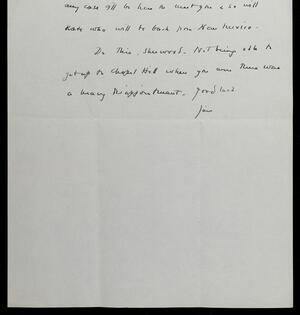 any case I'll be here to meet you & so will
Kate who will be back from New Mexico.
Do this, Sherwood. Not being able to
get up to Chapel Hill when you were there was
a heavy disappointment. Good luck